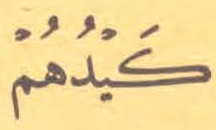 كَيْدُهُمْ